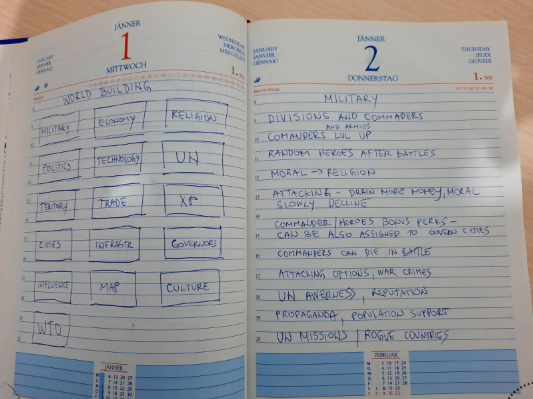 JÄNNER
JANUARY
JANVIER
GENNAIO
1
WEDNESDAY
MERCREDI
MITTWOCH
1.
WORLD BUILDING
MILITARY ECONOMY RELIGION
POLITICS TECHNOLOGY UN
TERITORY TRADE XP
CITIES INFRASTR. GOVERNORS
INFLUENCE MAP CULTURE
WTO
JÄNNER
JÄNNER
JANUARY
JANVIER
GENNAIO
2
THURSDAY
JEUDI
GIOVEDI
DONNERSTAG
1.
MILITARY
DIVISIONS AND COMMADERS
AND ARMIES
COMANDERS LVL UP
RANDOM HEROES AFTER BATTLES
MORAL -> RELIGION
ATTACKING - DRAIN MORE MONEY, MORAL
SLOWLY DECLINE
COMMANDER/HEROES BONUS PERKS -
CAN BE ALSO ASSIGNED TO GOVERN CITIES
COMMANDERS CAN DIE IN BATTLE
ATTACKING OPTIONS, WAR CRIMES
UN AWERNESS, REPUTATION
PROPAGANDA, POPULATION SUPPORT
UN MISSIONS / ROGUE COUNTRIES
FEBRUAR